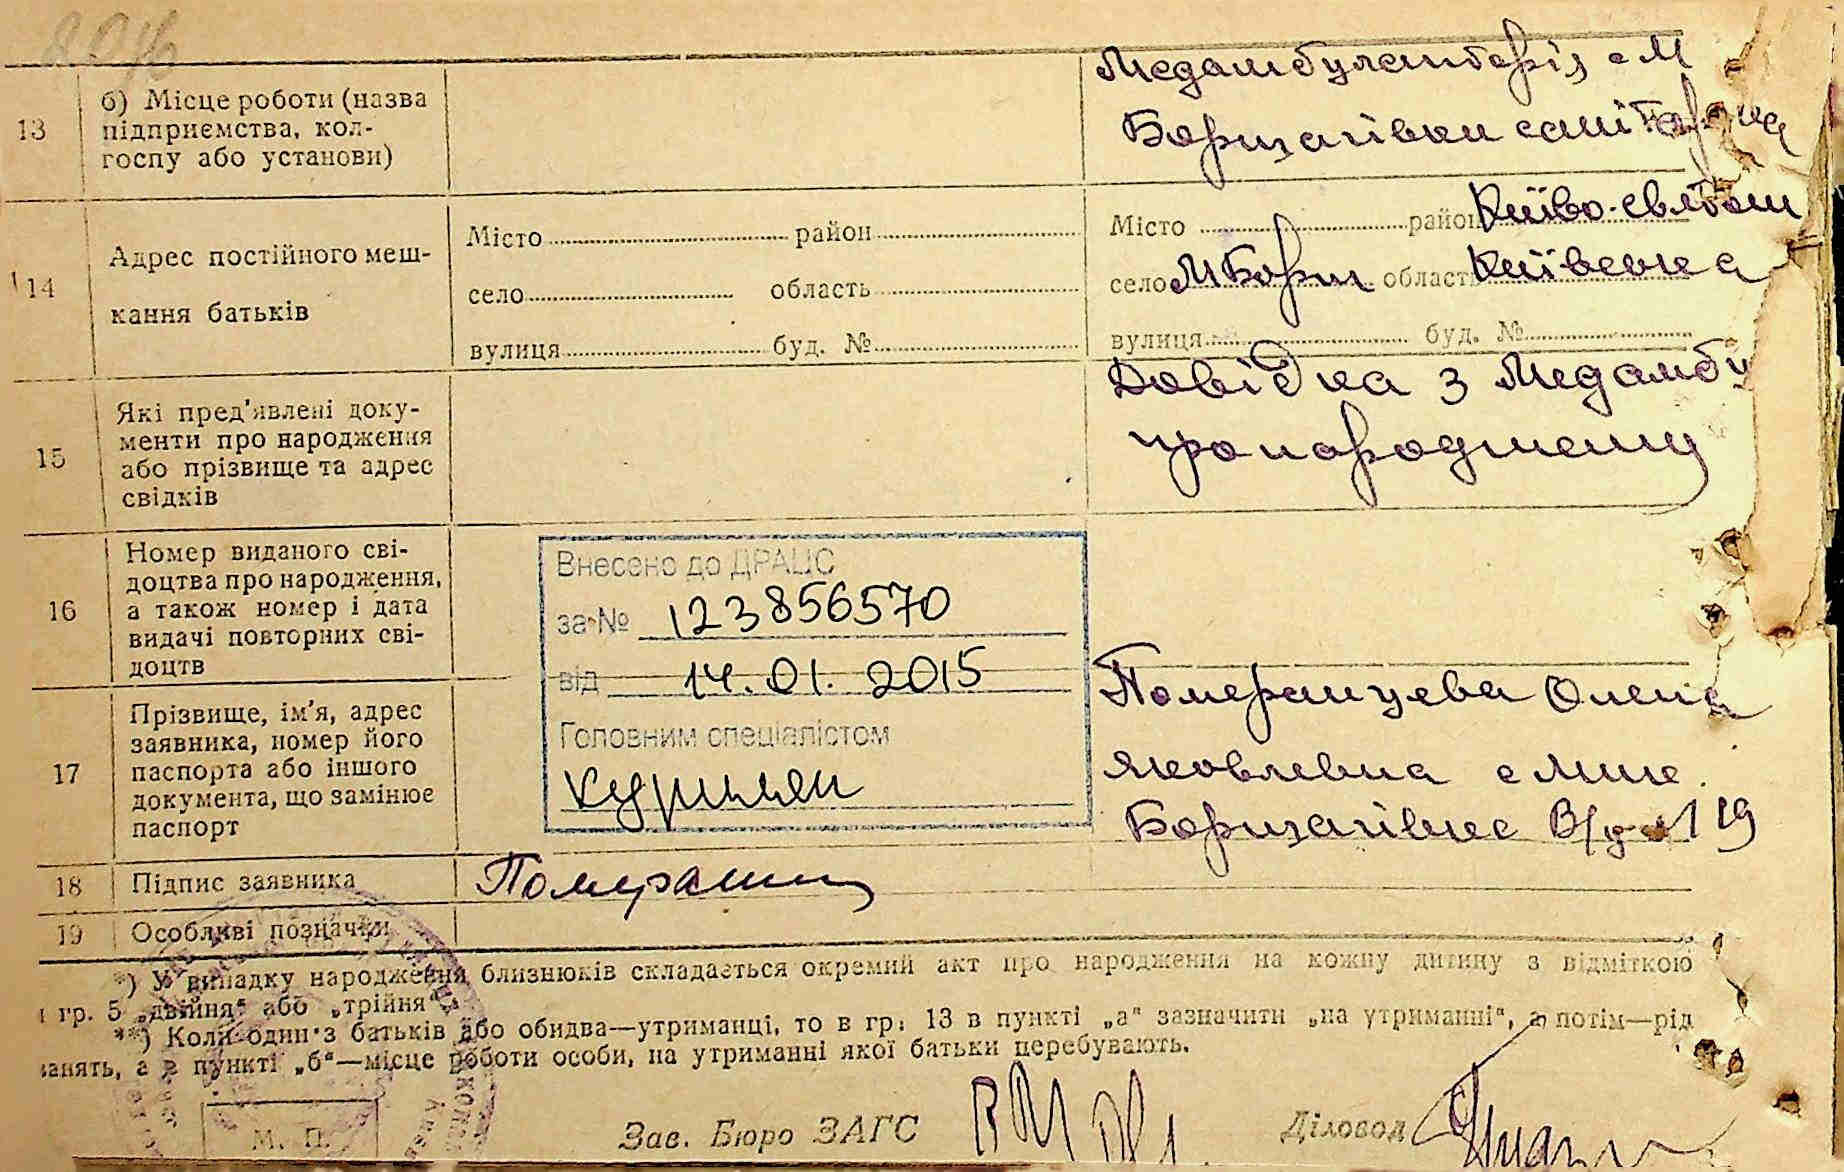 13
б) Місце роботи (назва
підприємства, кол-
госпу або установи)
Медамбулаторія с М
Борщагівки санітарка
14
Адрес постійного меш-
кання батьків
Місто район
село область
вулиця буд. №
Місто район Київо-Святош
село М Борщ область Київська
вулиця буд. №
15
Які пред'явлені доку-
менти про народження
або прізвище та адрес
свідків
Довідка з Медамбу
про народження
16
Номер виданого сві-
доцтва про народження,
а також номер і дата
видачі повторних сві-
доцтв
Внесено до ДРАЦС
за № 123856570
від 14.01.2015
Головним спеціалістом
17
Прізвище, ім'я, адрес
заявника, номер його
паспорта або іншого
документа, що замінює
паспорт
Померанцева Олена
Яковлевна с Мик
Борщагівка В/ч 119
18
Підпис заявника
19
Особливі позначки
*) У випадку народження близнюків складається окремий акт про народження на кожну дитину з відміткою
гр. 5 „двійня" або „трійня"
**) Коли один з батьків або обидва—утриманці, то в гр. 13 в пункті „а" зазначити „на утриманні", а потім—рід
занять, а в пункті „б"—місце роботи особи, на утриманні якої батьки перебувають.
М. П.
Зав. Бюро ЗАГС
Діловод